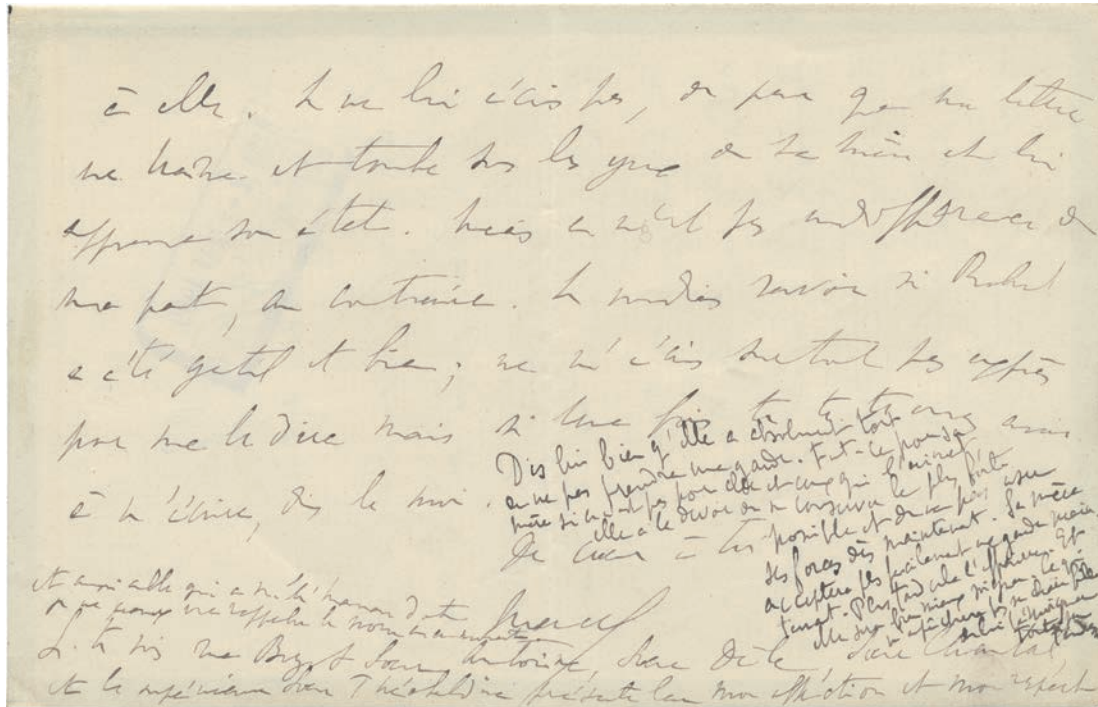 à elle. Je ne lui écris pas, de peur que ma lettre
ne traîne et tombe sous les yeux de sa mère et lui
apprenne son état. Mais ce n'est pas indifférence de
ma part, au contraire. Je voudrais savoir si Robert
a été gentil et bien ; ne m'écris surtout pas exprès
pour me le dire mais si une fois tu te trouves avoir
à m'écrire, dis le moi.
De cœur à toi
Marcel
Dis lui bien qu'elle a absolument tort
de ne pas prendre une garde. Fût-ce pour sa
mère si ce n'est pas pour elle et ceux qui l'aiment
elle a le devoir de se conserver le plus forte
possible et de ne pas user
ses forces dès maintenant. Sa mère
acceptera plus facilement une garde maintenant.
Plus tard cela l'effraiera. Et
elle sera bien mieux soignée. Ce qui
n'empêchera pas sa chère fille
de la soigner
Et aussi celle qui a
je ne peux me rappeler le nom en ce moment
Si tu vois Sœur Antoine, Sœur Sœur Chantal,
et la supérieure Sœur présente leur mon affection et mon respect